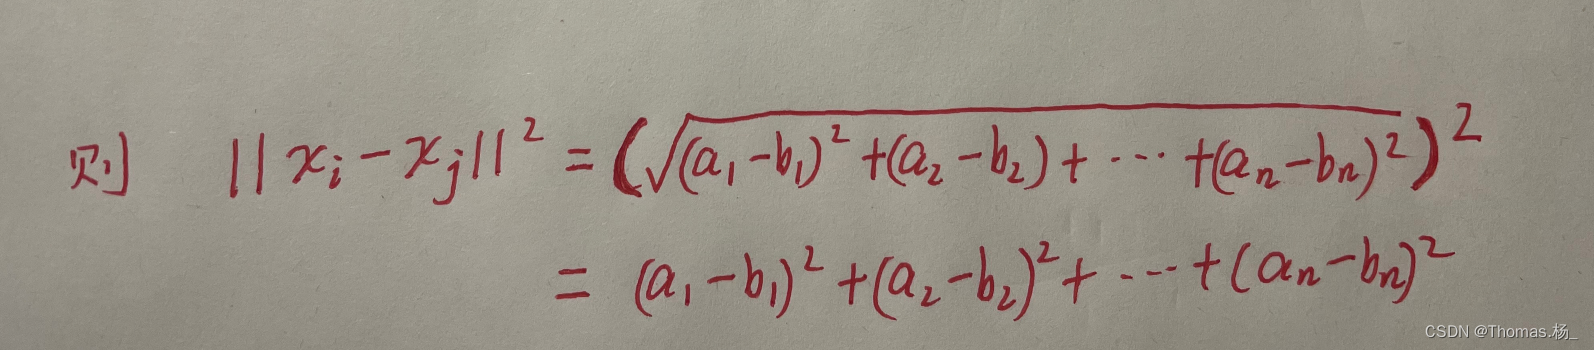 则 ||x_i - x_j||^2 = (√((a_1-b_1)^2 + (a_2-b_2) + ··· + (a_n-b_n)^2))^2
= (a_1-b_1)^2 + (a_2-b_2)^2 + ··· + (a_n-b_n)^2
CSDN @Thomas.杨_